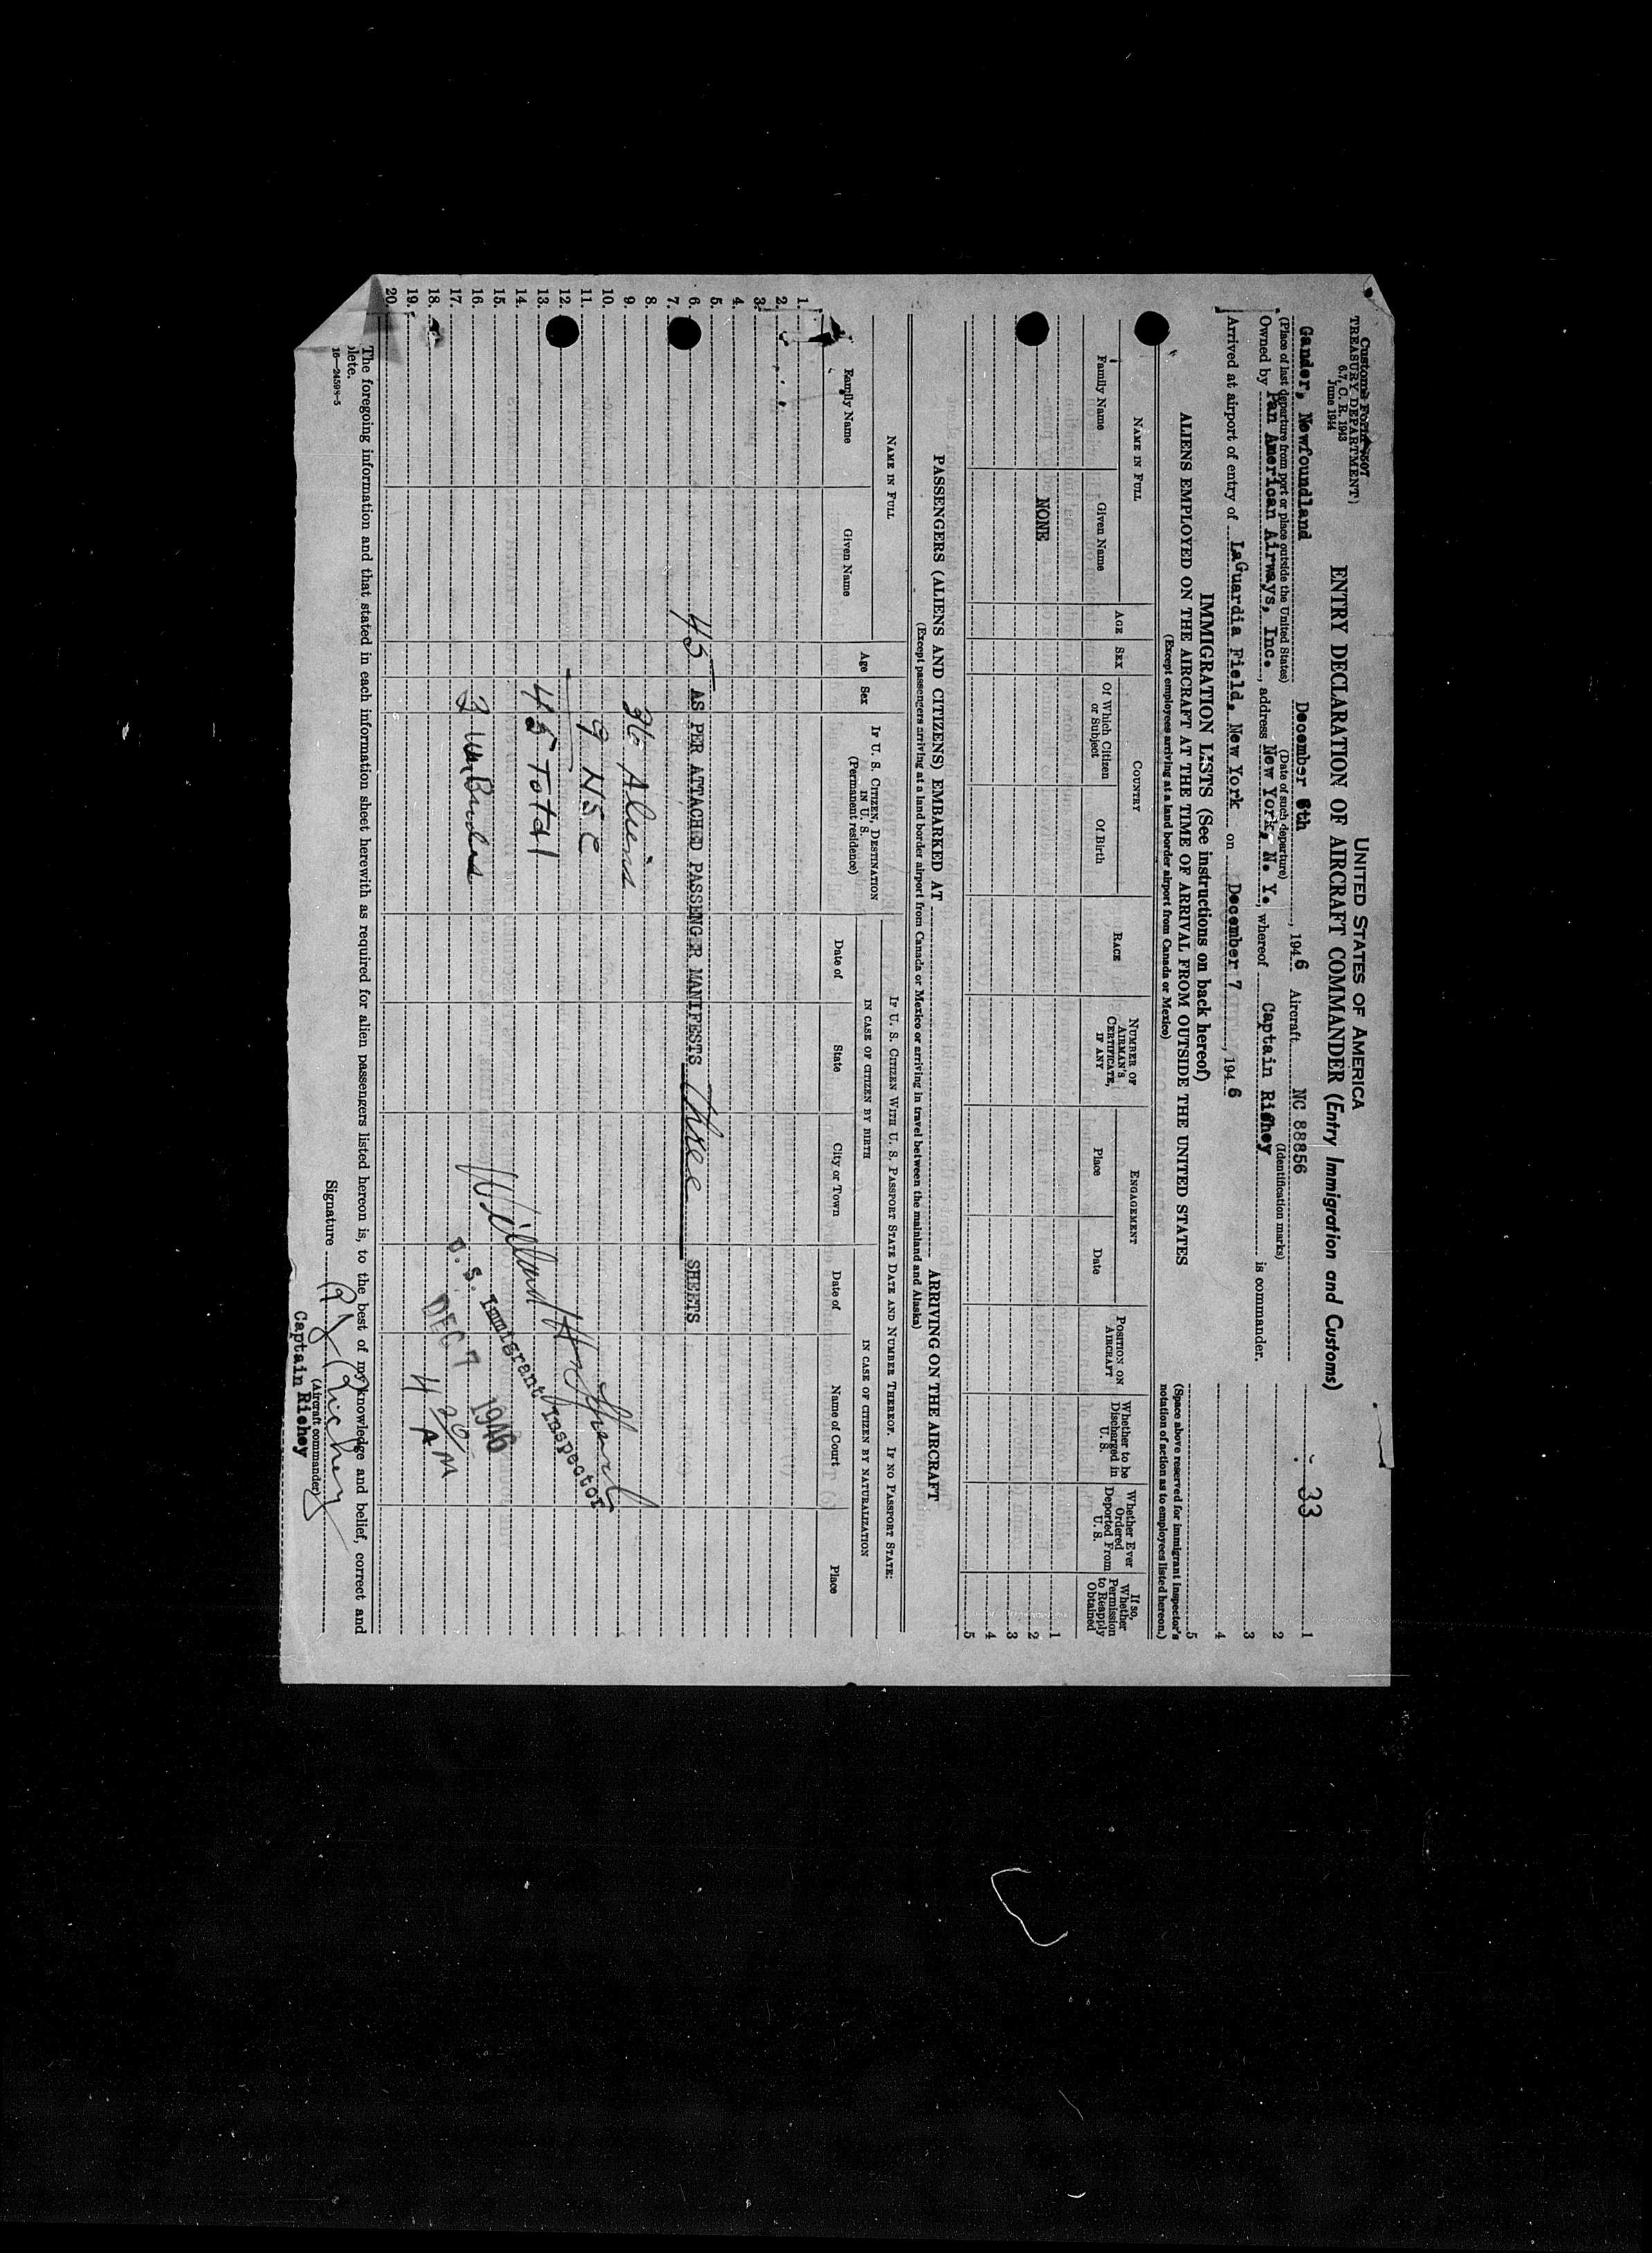 Customs Form 7507
TREASURY DEPARTMENT
6.7, C. R. 1943
June 1944
UNITED STATES OF AMERICA
ENTRY DECLARATION OF AIRCRAFT COMMANDER (Entry Immigration and Customs)
33
Gander, Newfoundland December 6th, 1946 Aircraft NC 88856
(Place of last departure from port or place outside the United States) (Date of such departure) (Identification marks)
Owned by Pan American Airways, Inc., address New York, N. Y., whereof Captain Richey is commander.
Arrived at airport of entry of LaGuardia Field, New York on December 7, 1946
1
2
3
4
5
(Space above reserved for immigrant inspector's notation of action as to employees listed hereon.)
IMMIGRATION LISTS (See instructions on back hereof)
ALIENS EMPLOYED ON THE AIRCRAFT AT THE TIME OF ARRIVAL FROM OUTSIDE THE UNITED STATES
(Except employees arriving at a land border airport from Canada or Mexico)
NAME IN FULL
Family Name Given Name
AGE SEX
COUNTRY
Of Which Citizen or Subject Of Birth
RACE
NUMBER OF AIRMAN'S CERTIFICATE, IF ANY
ENGAGEMENT
Place Date
POSITION ON AIRCRAFT
Whether to be Discharged in U. S.
Whether Ever Ordered Deported From U. S.
If so, Whether Permission to Reapply Obtained
1
NONE 2
3
4
5
PASSENGERS (ALIENS AND CITIZENS) EMBARKED AT ARRIVING ON THE AIRCRAFT
(Except passengers arriving at a land border airport from Canada or Mexico or arriving in travel between the mainland and Alaska)
NAME IN FULL
Family Name Given Name
Age Sex
IF U. S. CITIZEN, DESTINATION IN U. S. (Permanent residence)
IF U. S. CITIZEN WITH U. S. PASSPORT STATE DATE AND NUMBER THEREOF. IF NO PASSPORT STATE:
IN CASE OF CITIZEN BY BIRTH
Date of State City or Town
IN CASE OF CITIZEN BY NATURALIZATION
Date of Name of Court Place
1.
2.
3.
4.
5.
6. 45 AS PER ATTACHED PASSENGER MANIFESTS Three SHEETS
7.
8.
9. 36 Aliens
10.
11. 9 NSC
12.
13. 45 Total
14.
15.
16.
17.
18.
19.
20.
U. S. Immigrant Inspector
DEC 7 1946
4 20 AM
The foregoing information and that stated in each information sheet herewith as required for alien passengers listed hereon is, to the best of my knowledge and belief, correct and
plete.
16—24598-5
Signature
(Aircraft commander)
Captain Richey